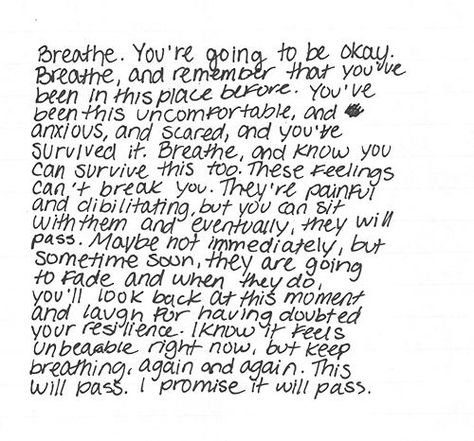 Breathe. You're going to be okay.
Breathe, and remember that you've
been in this place before. You've
been this uncomfortable, and
anxious, and scared, and you've
survived it. Breathe, and know you
can survive this too. These feelings
can't break you. They're painful
and dibilitating, but you can sit
with them and eventually, they will
pass. Maybe not immediately, but
sometime soon, they are going
to fade and when they do,
you'll look back at this moment
and laugh for having doubted
your resilience. I know it feels
unbearable right now, but keep
breathing, again and again. This
will pass. I promise it will pass.